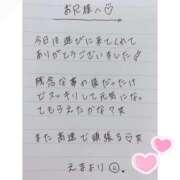 お兄様へ♡
今日は遊びに来てくれて
ありがとうございました!!
残念な事の後だったけ
どスッキリして元気になっ
てもらえたかな?
また高速で頑張る♡
えまより